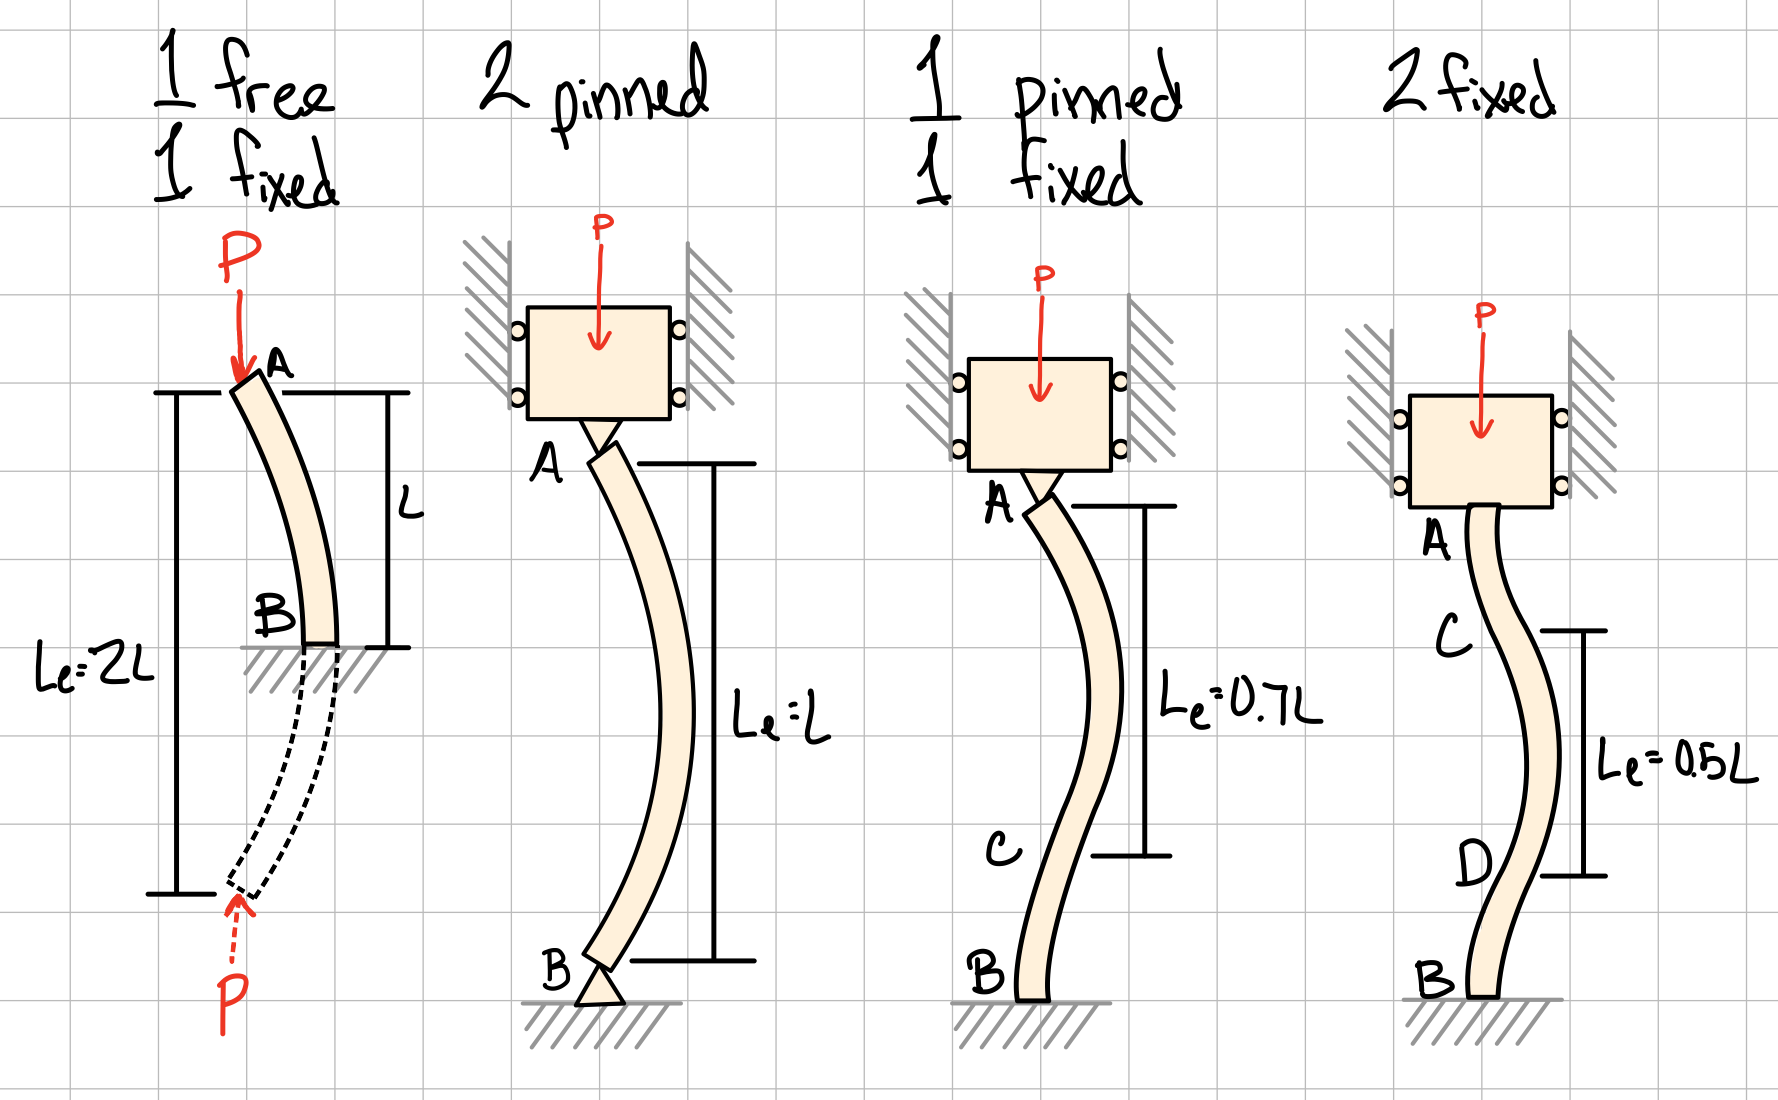 1 free
1 fixed
P
A
L
B
Le=2L
P
2 pinned
P
A
Le=L
B
1 pinned
1 fixed
P
A
Le=0.7L
C
B
2 fixed
P
A
C
Le=0.5L
D
B